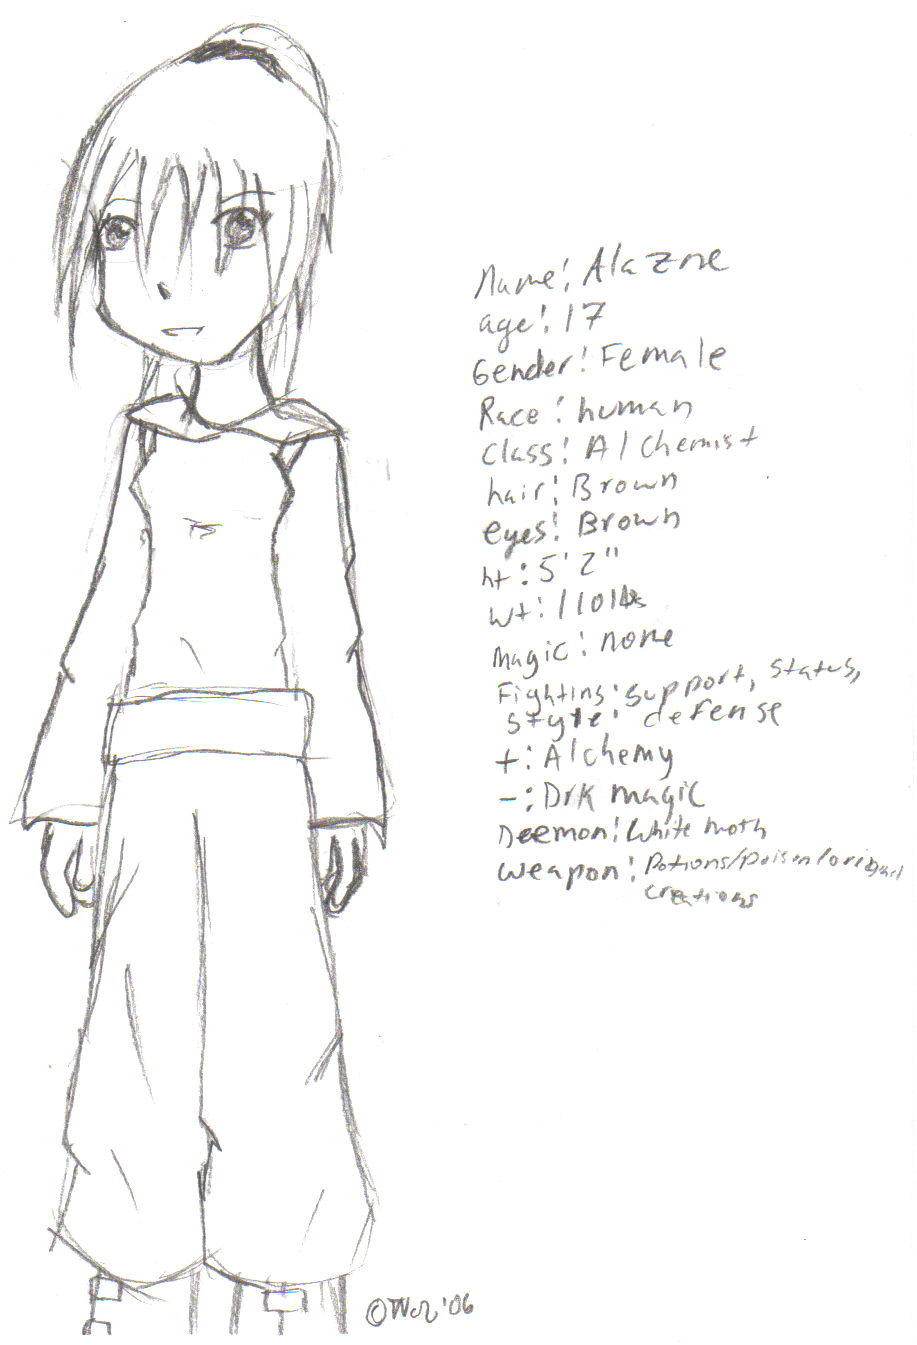 Name: Alazne
age: 17
Gender: Female
Race: human
Class: Alchemist
hair: Brown
eyes: Brown
ht: 5'2"
wt: 110lbs
Magic: none
Fighting: support, status,
style: defense
+: Alchemy
-: Drk magic
Deemon: White moth
weapon: Potions/Poison/original
creations
© '06